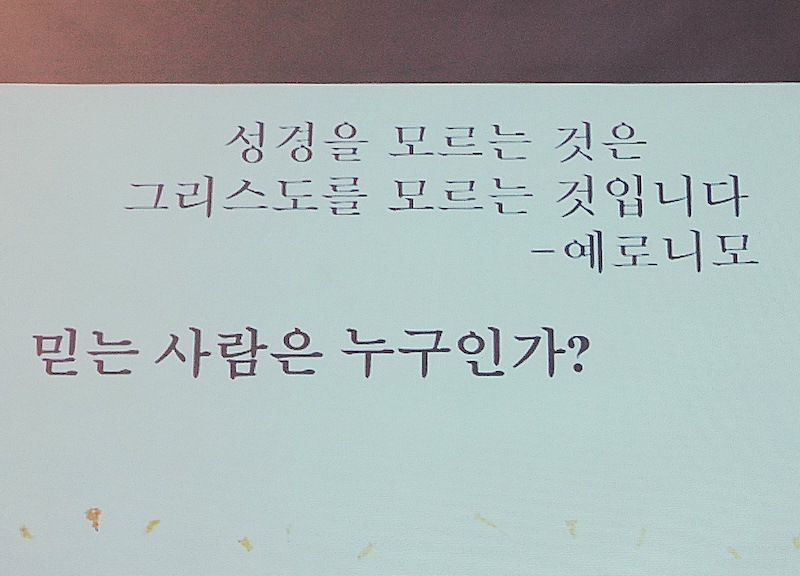 성경을 모르는 것은
그리스도를 모르는 것입니다
-예로니모
믿는 사람은 누구인가?